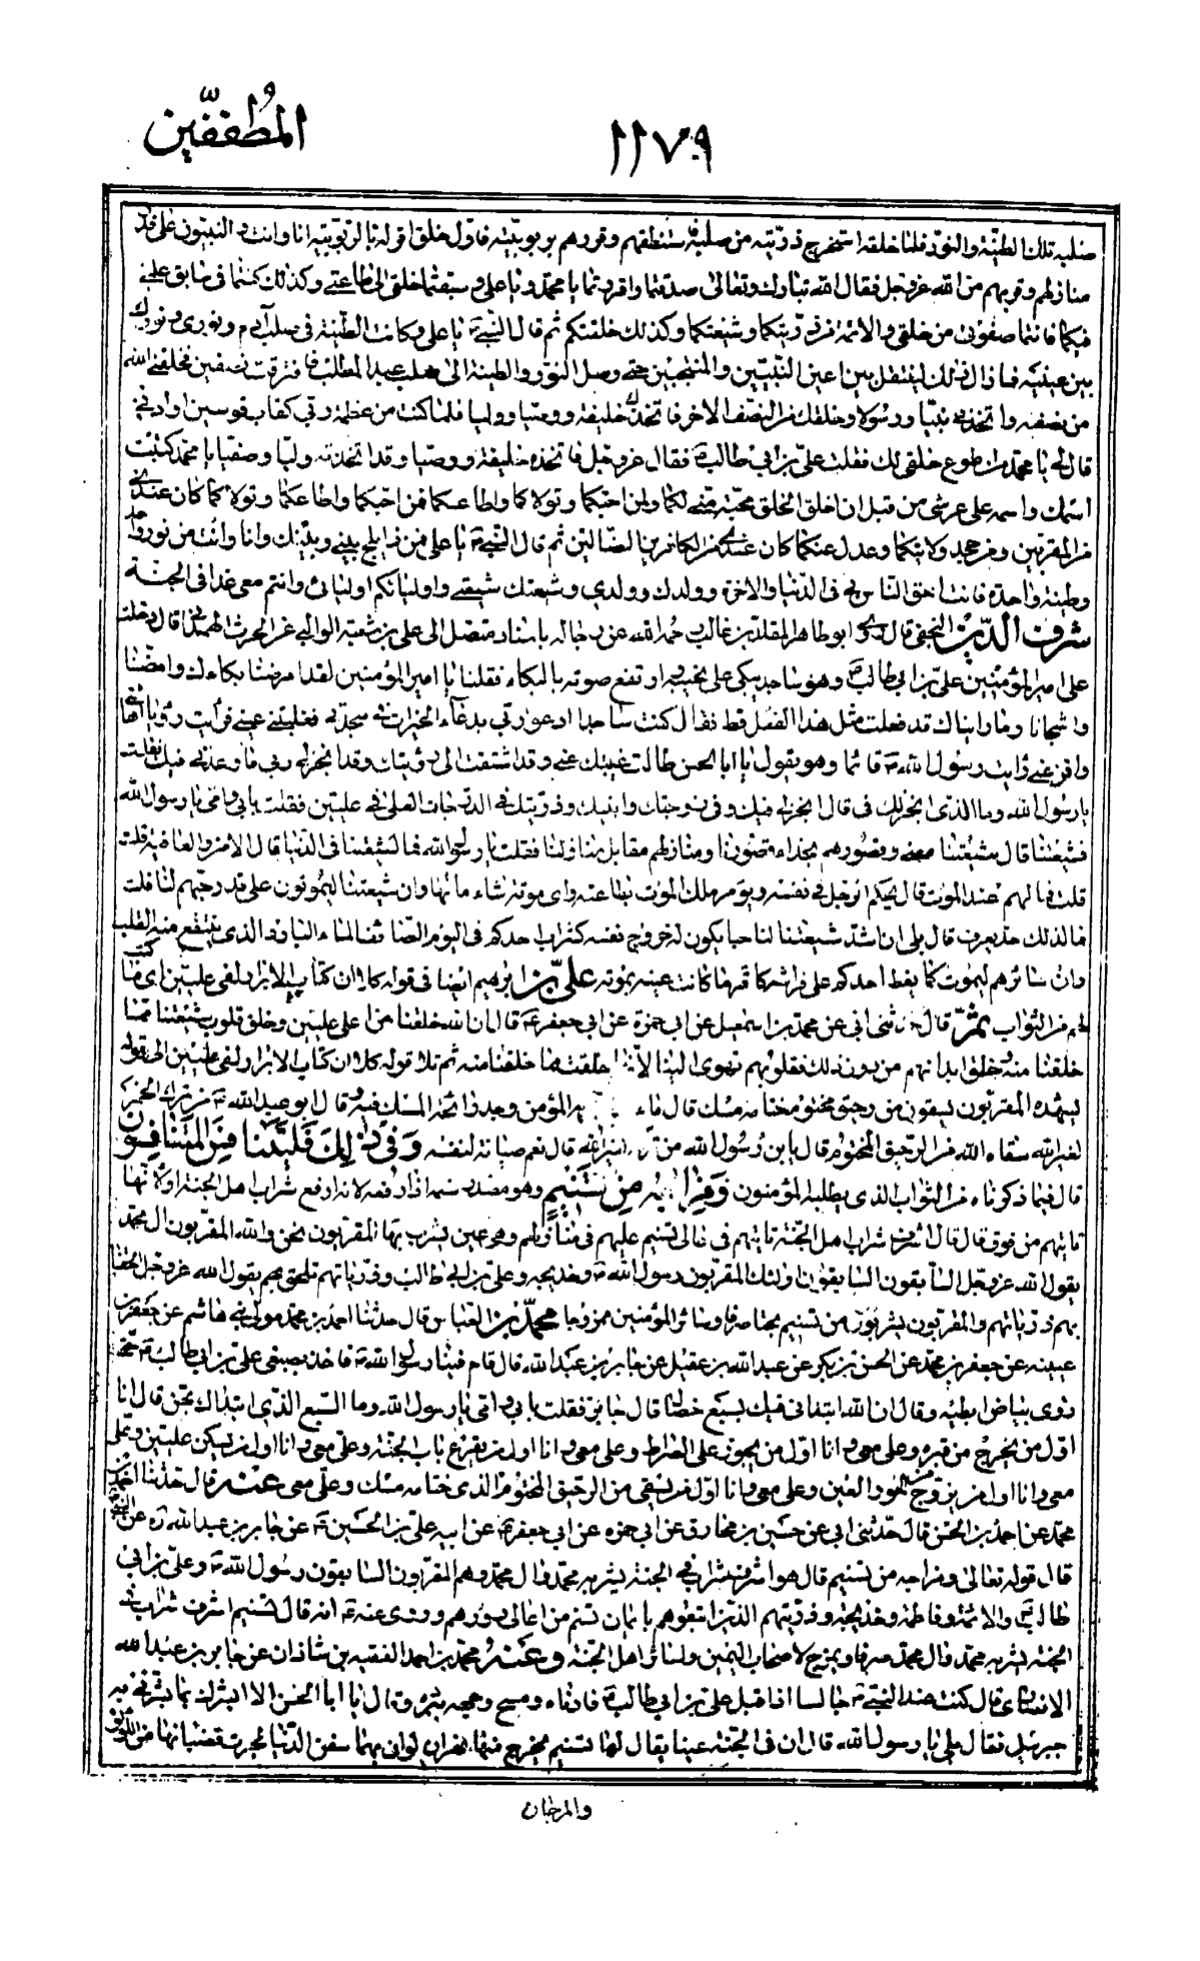 المُطفّفين
١١٧٩
صلبه تلك الطينة والنور فلما خلقه استخرج ذريته من صلبه فاستنطقهم وقررهم بربوبيته فاول خلق اقر له بالربوبية انا وانت والنبيون على قدر
منازلهم وقربهم من الله عز وجل فقال الله تبارك وتعالى صدقتما واقررتما يا محمد ويا علي وسبقتما خلقي الى طاعتي وكذلك كنتما في سابق علمي
فيكما فانتما صفوتي من خلقي والائمة من ذريتكما وشيعتكما وكذلك خلقتكم ثم قال النبي ص يا علي وكانت الطينة في صلب آدم ونوري ونورك
بين عينيه فما زال ذلك ينتقل بين اعين النبيين والمنتجبين حتى وصل النور والطينة الى صلب عبد المطلب فافترقت نصفين فخلقني الله
من نصفه واتخذني نبيا ورسولا وخلقك من النصف الاخر فاتخذك خليفة ووصيا ووليا فلما كنت من عظمة ربي كقاب قوسين او ادنى
قال لي يا محمد من اطوع خلقي لك فقلت علي بن ابي طالب ع فقال عز وجل فاتخذه خليفة ووصيا وقد اتخذته وليا وصفيا يا محمد كتبت
اسمك واسمه على عرشي من قبل ان اخلق الخلق محبة مني لكما ولمن احبكما وتولاكما واطاعكما فمن احبكما واطاعكما وتولاكما كان عندي
من المقربين ومن جحد ولايتكما وعدل عنكما كان عندي من الكافرين الضالين ثم قال النبي ص يا علي فمن ذا يلج بيني وبينك وانا وانت من نور واحد
وطينة واحدة فانت احق الناس بي في الدنيا والاخرة وولدك وولدي وشيعتك شيعتي واولياؤكم اوليائي وانتم معي غدا في الجنة
شرف الدين النجفي قال روى ابو طاهر المقلد بن غالب رحمه الله عن رجاله باسناد متصل الى علي بن شعبة الوالبي عن الحرث الهمداني قال دخلت
على امير المؤمنين علي بن ابي طالب ع وهو ساجد يبكي على نحيبه وارتفع صوته بالبكاء فقلنا يا امير المؤمنين لقد امرضنا بكاءك وامضنا
واشجانا وما رايناك قد فعلت مثل هذا الفعل قط فقال كنت ساجدا ادعو ربي بدعاء الخيرات في سجدتي فغلبتني عيني فرأيت رؤيا
وافزعني رايت رسول الله ص قائما وهو يقول يا ابا الحسن طالت غيبتك عني وقد اشتقت الى رؤيتك وقد انجز لي ربي ما وعدني فيك فقلت
يا رسول الله وما الذي انجز لك في قال انجز لي فيك وفي زوجتك وابنيك وذريتك في الدرجات العلى في عليين فقلت بابي وامي يا رسول الله
فشيعتنا قال شيعتنا معنا وقصورهم بحذاء قصورنا ومنازلهم مقابل منازلنا فقلت يا رسول الله فما لشيعتنا في الدنيا قال الامن والعافية قلت
قلت فما لهم عند الموت قال يحكم الرجل في نفسه ويؤمر ملك الموت بطاعته واي موتة شاء ماتها وان شيعتنا ليموتون على قدر حبهم لنا قلت
فما لذلك حد يعرف قال بلى ان اشد شيعتنا لنا حبا يكون له خروج نفسه كشراب احدكم في اليوم الصائف الماء البارد الذي ينتفع منه القلب
وان سائرهم ليموت كما يغط احدكم على فراشه كاقر ما كانت عينه بموته علي بن ابرهيم ايضا في قوله كلا ان كتاب الابرار لفي عليين اي ما كتب
لهم من الثواب ثم قال حدثني ابي عن محمد بن اسمعيل عن ابي حمزة عن ابي جعفر ع قال ان الله خلقنا من اعلى عليين وخلق قلوب شيعتنا مما
خلقنا منه وخلق ابدانهم من دون ذلك فقلوبهم تهوى الينا لانها خلقت مما خلقنا منه ثم تلا قوله كلا ان كتاب الابرار لفي عليين الى قوله
يشهده المقربون يسقون من رحيق مختوم ختامه مسك قال ماء المؤمن وجد رائحة المسك فيه وقال ابو عبد الله ع من ترك الخمر
لغير الله سقاه الله من الرحيق المختوم قال يا ابن رسول الله من ترك لغير الله قال نعم صيانة لنفسه وَفِي ذٰلِكَ فَلْيَتَنَافَسِ الْمُتَنَافِسُونَ
قال فيما ذكرناه من الثواب الذي يطلبه المؤمنون وَمِزَاجُهُ مِنْ تَسْنِيمٍ وهو مصدر سنمه اذا رفعه لانه ارفع شراب اهل الجنة او لانها
تاتيهم من فوق قال قال اشرف شراب اهل الجنة تاتيهم في عالي تسنيم عليهم في منازلهم وهي عين يشرب بها المقربون نحن والله المقربون ال محمد
يقول الله عز وجل السابقون السابقون اولئك المقربون رسول الله ص وخديجة وعلي بن ابي طالب وذرياتهم تلحق بهم يقول الله عز وجل الحقنا
بهم ذرياتهم والمقربون يشربون من تسنيم بحتا صرفا وسائر المؤمنين ممزوجا محمد بن العباس قال حدثنا احمد بن محمد مولى بني هاشم عن جعفر بن
عيينة عن جعفر بن محمد عن الحسن بن بكر عن عبد الله بن عقيل عن جابر بن عبد الله قال قام فينا رسول الله ص فاخذ بضبعي علي بن ابي طالب ع حتى
رؤي بياض ابطيه وقال ان الله ابتدأني فيك بسبع خصال قال جابر فقلت بابي وامي يا رسول الله وما السبع الذي ابتداك بهن قال انا
اول من يخرج من قبره وعلي معي وانا اول من يجوز على الصراط وعلي معي وانا اول من يقرع باب الجنة وعلي معي وانا اول من يسكن عليين وعلي
معي وانا اول من يزوج من الحور العين وعلي معي وانا اول من يسقى من الرحيق المختوم الذي ختامه مسك وعلي معي عنه قال حدثنا احمد بن
محمد عن احمد بن الحسن قال حدثني ابي عن حصين بن مخارق عن ابي حمزة عن ابي جعفر ع عن ابيه علي بن الحسين ع عن جابر بن عبد الله ره عن النبي ص
قال قوله تعالى ومزاجه من تسنيم قال هو اشرف شراب في الجنة يشربه محمد وال محمد وهم المقربون السابقون رسول الله ص وعلي بن ابي
طالب والائمة وفاطمة وخديجة وذريتهم الذين اتبعوهم بايمان تسنم من اعالي دورهم وروى عنه ع انه قال تسنيم اشرف شراب في
الجنة يشربه محمد وال محمد صرفا ويمزج لاصحاب اليمين ولسائر اهل الجنة وعنه محمد بن احمد الفقيه بن شاذان عن جابر بن عبد الله
الانصاري قال كنت عند النبي ص جالسا اذا قبل علي بن ابي طالب ع فادناه ومسح وجهه ببرده وقال يا ابا الحسن الا ابشرك بما بشرني به
جبرئيل فقال بلى يا رسول الله قال ان في الجنة عينا يقال لها تسنيم يخرج منها نهران لو ان بهما سفن الدنيا لجرت قضبانها من اللؤلؤ
والمرجان